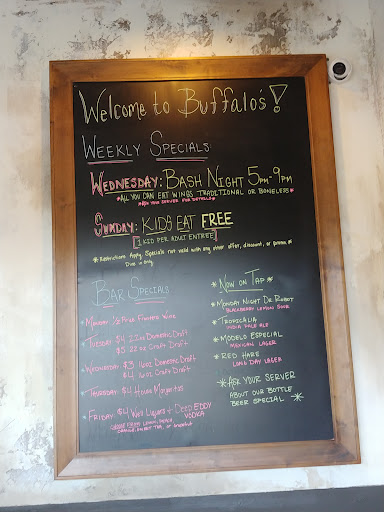 Welcome to Buffalo's!
Weekly Specials
Wednesday: Bash Night 5pm-9pm
*All you can eat wings traditional or boneless*
*Ask your server for details*
Sunday: Kids Eat FREE
[1 kid per adult entree]
*Restrictions Apply. Specials not valid with any other offer, discount, or promo*
Dine in only
Bar Specials
*Monday ½ Price Flowers Wine
*Tuesday $4 22oz Domestic Draft
$5 22oz Craft Draft
*Wednesday $3 16oz Domestic Draft
$4 16oz Craft Draft
*Thursday: $4 House Margaritas
*Friday: $4 Well Liquors + Deep Eddy
Vodka
Choose from: Lemon, Peach,
Orange, Sweet Tea, or Grapefruit
*Now on Tap*
*Monday Night Dr Robot
Blackberry Lemon Sour
*Tropicália
India Pale Ale
*Modelo Especial
Mexican Lager
*Red Hare
Long Day Lager
*Ask your server
about our bottle
beer special*